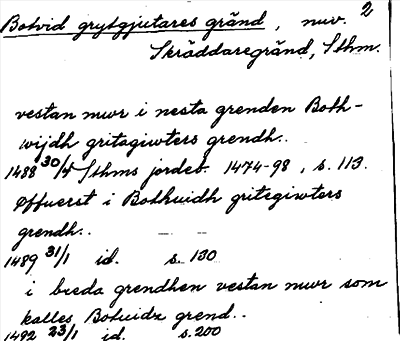 Botvid grytgjutares gränd, nuv. 2
Skräddaregränd, Sthm.
vestan mwr i nesta grenden Both-
wijdh gritagiwters grendh..
1488 30/4 Sthms jordeb. 1474-98, s. 113.
Øffuerst i Bothuidh gritegiwters
grendh..
1489 31/1 id. s. 130
i breda grendhen vestan mwr som
kalles Botuidz grend..
1492 23/1 id. s. 200